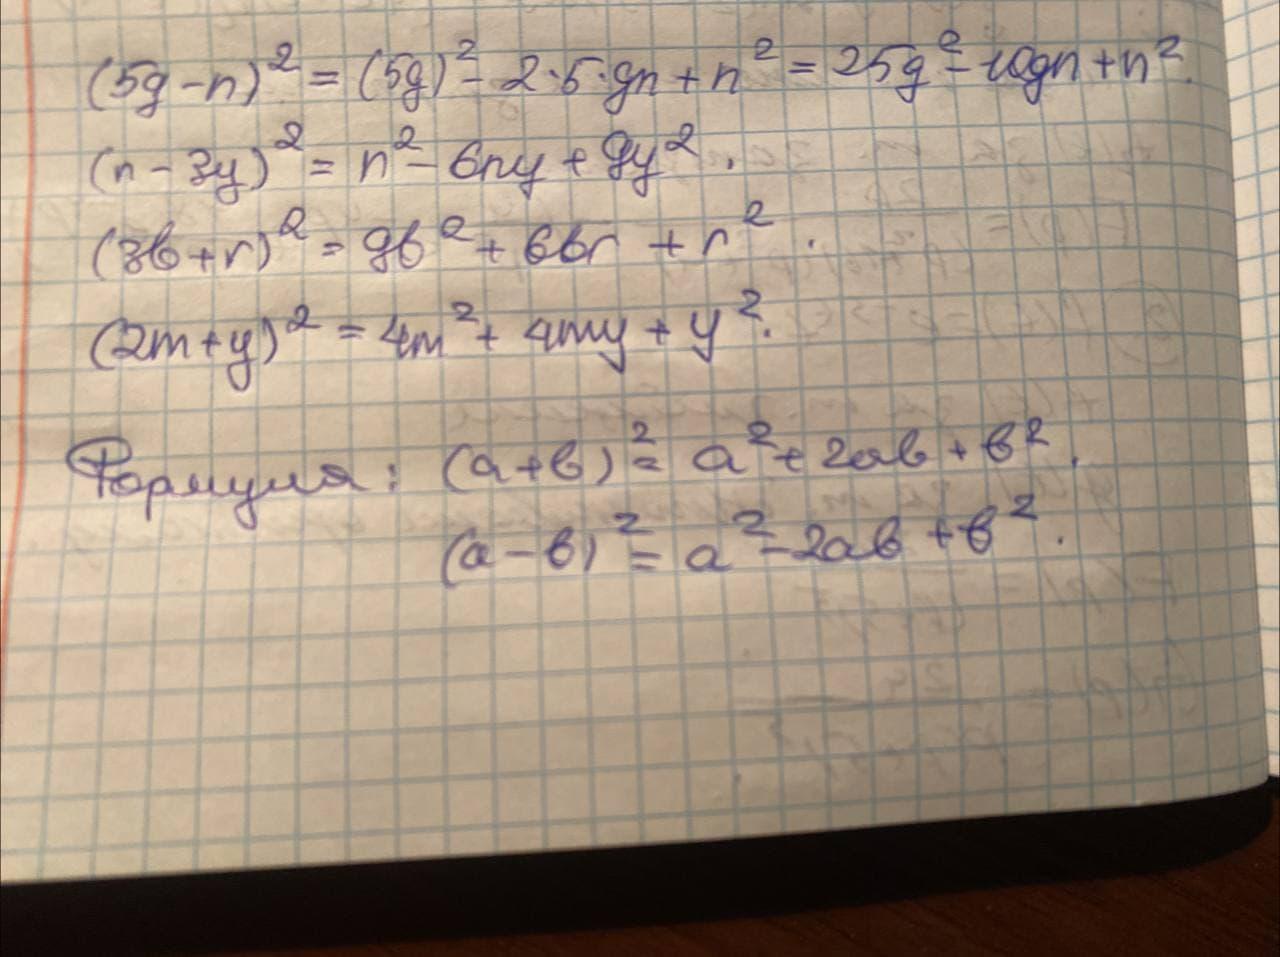 (5g-n)² = (5g)² - 2·5·gn + n² = 25g² - 10gn + n².
(n - 3y)² = n² - 6ny + 9y².
(3b+r)² = 9b² + 6br + r².
(2m+y)² = 4m² + 4my + y².
Формула: (a+b)² = a² + 2ab + b².
(a-b)² = a² - 2ab + b².